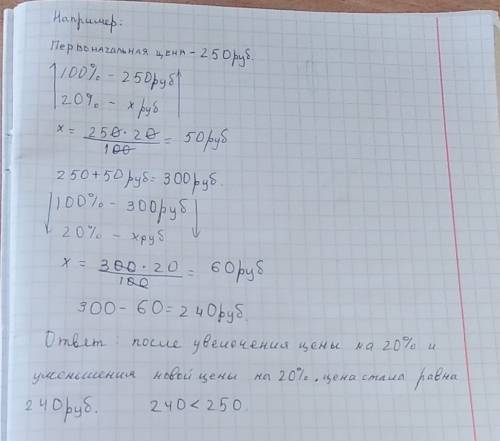 Например:
Первоначальная цена - 250руб.
100% - 250руб
20% - х руб
х = 250 · 20 / 100 = 50руб
250 + 50руб = 300руб.
100% - 300руб
20% - хруб
х = 300 · 20 / 100 = 60руб
300 - 60 = 240руб.
Ответ: после увелочения цены на 20% и
уменьшения новой цены на 20%, цена стала равна
240руб. 240 < 250.